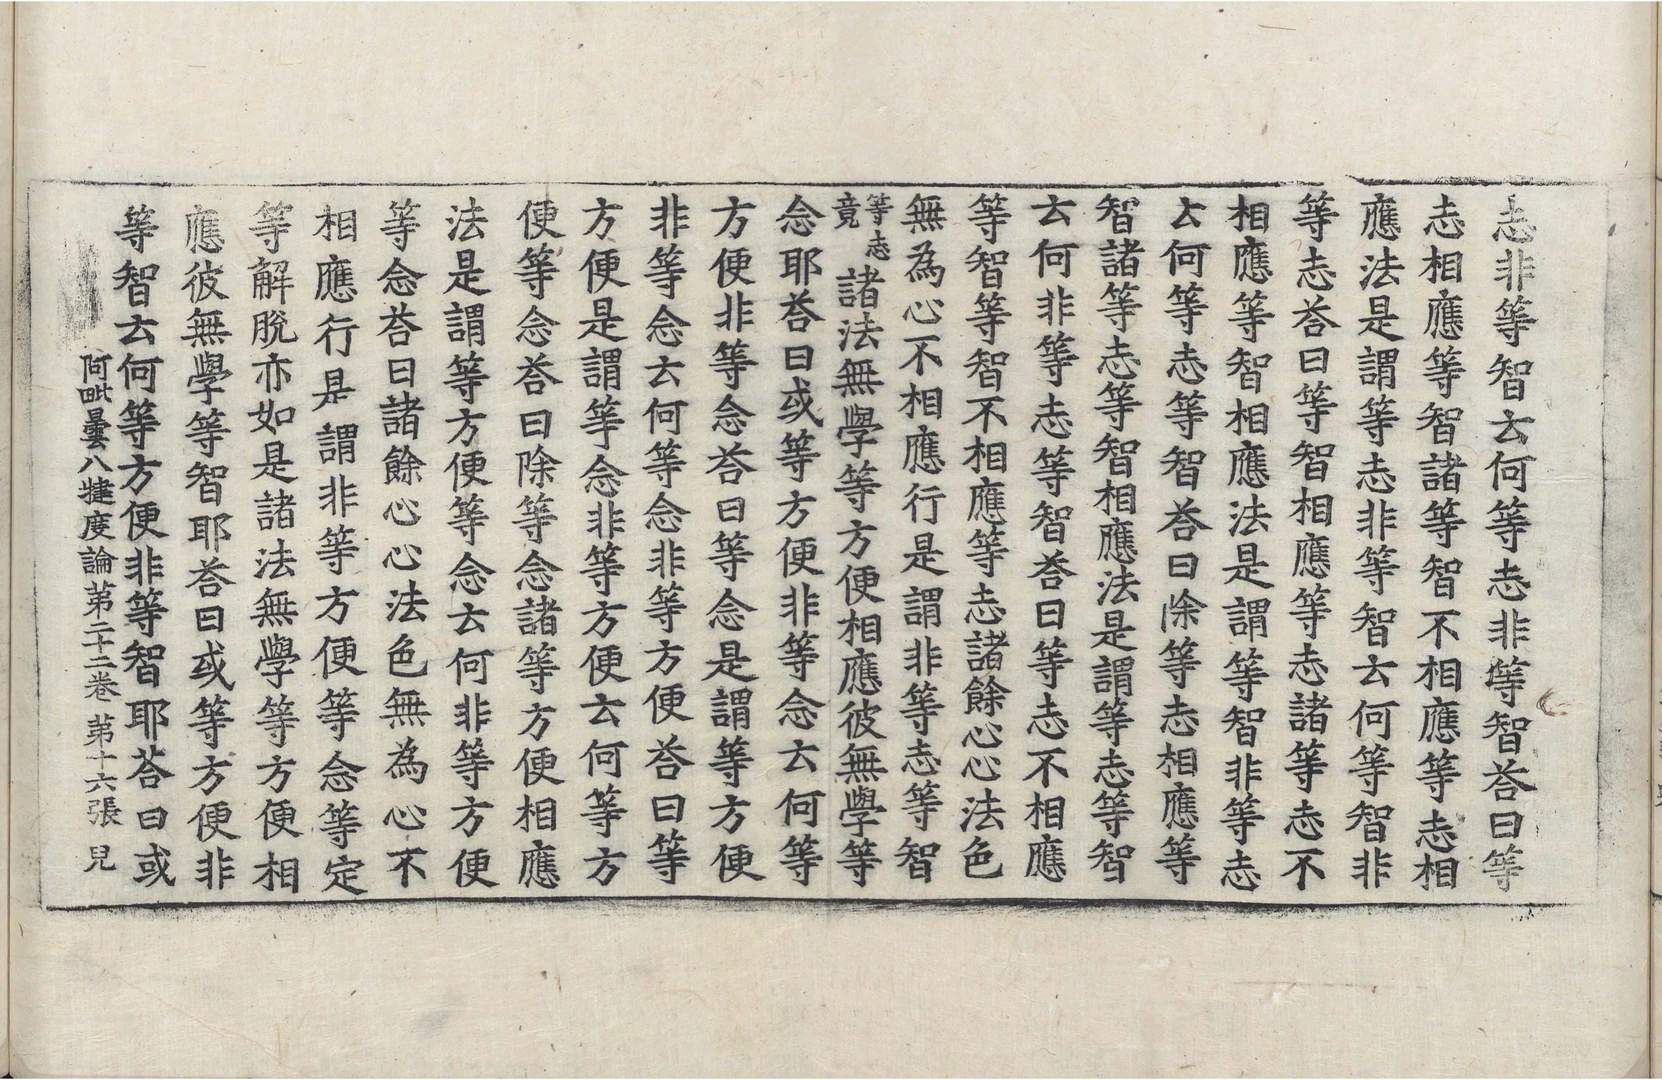 志非等智云何等志非等智荅曰等
志相應等智諸等智不相應等志相
應法是謂等志非等智云何等智非
等志荅曰等智相應等志諸等志不
相應等智相應法是謂等智非等志
云何等志等智荅曰除等志相應等
智諸等志等智相應法是謂等志等智
云何非等志等智荅曰等志不相應
等智等智不相應等志諸餘心心法色
無為心不相應行是謂非等志等智
等志竟諸法無學等方便相應彼無學等
念耶荅曰或等方便非等念云何等
方便非等念荅曰等念是謂等方便
非等念云何等念非等方便荅曰等
方便是謂等念非等方便云何等方
便等念荅曰除等念諸等方便相應
法是謂等方便等念云何非等方便
等念荅曰諸餘心心法色無為心不
相應行是謂非等方便等念等定
等解脫亦如是諸法無學等方便相
應彼無學等智耶荅曰或等方便非
等智云何等方便非等智耶荅曰或
阿毗曇八犍度論第二十二卷 第十六張 兒